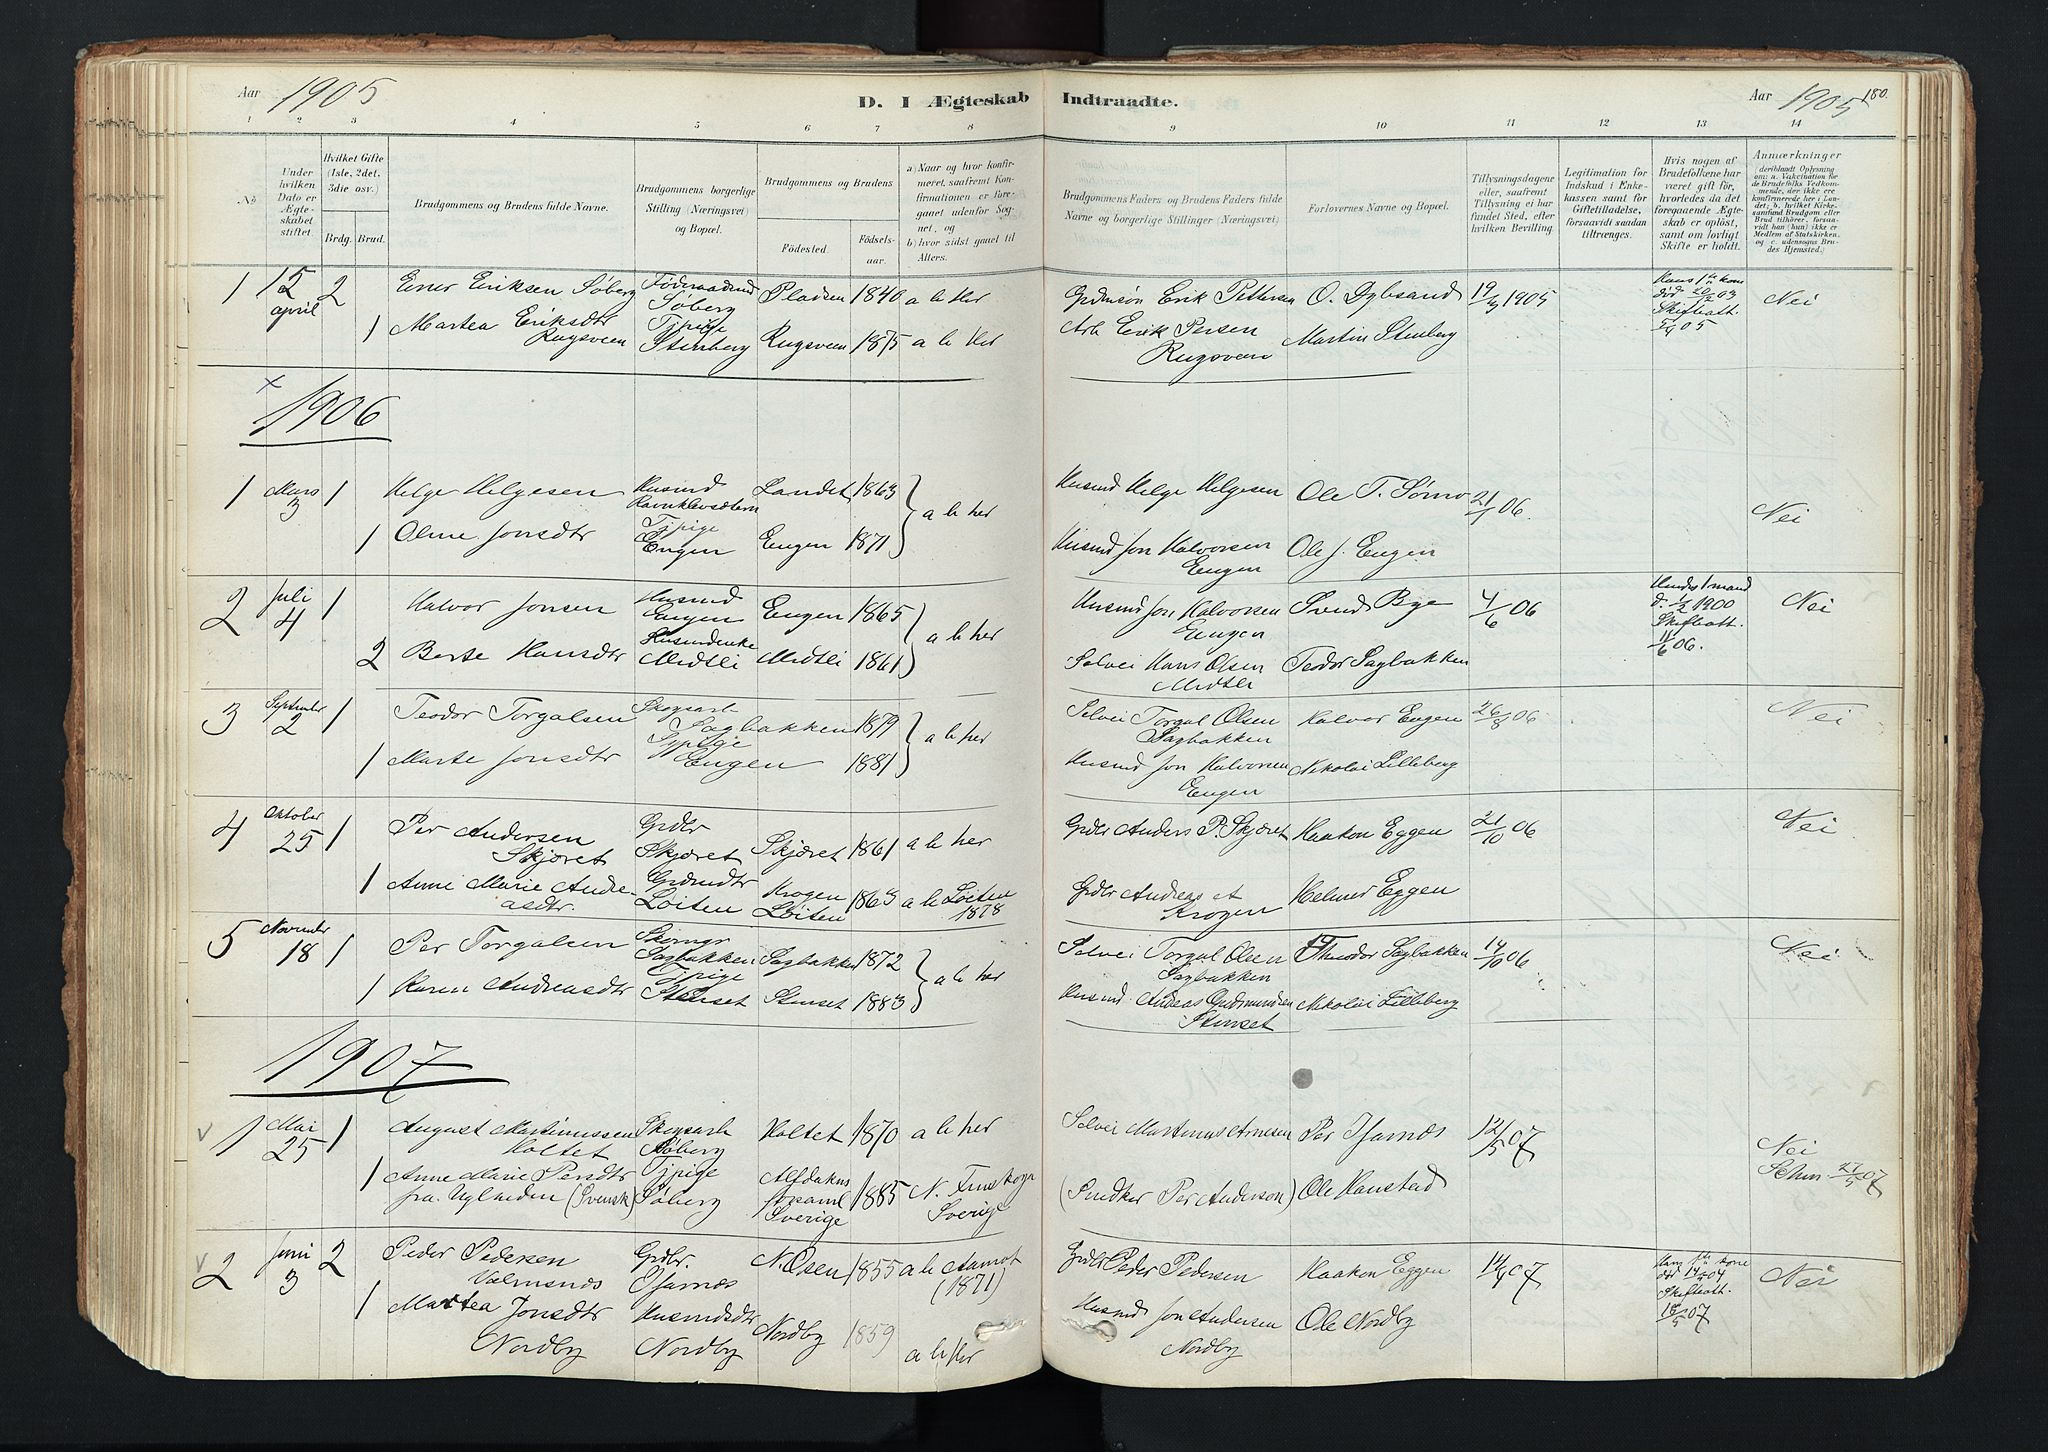 Aar 1905
D. I Ægteskab Indtraadte.
Aar 1905 180.
1 2 3 4 5 6 7 8 9 10 11 12 13 14
No
Under hvilken Dato er Ægteskabet stiftet.
Hvilket Gifte (1ste, 2det, 3die osv.)
Brdg. Brud.
Brudgommens og Brudens fulde Navne.
Brudgommens borgerlige Stilling (Næringsvei) og Bopæl.
Brudgommens og Brudens
Fødested. Fødsels-aar.
a) Naar og hvor konfirmeret, saafremt Konfirmationen er foregaaet udenfor Sognet, og
b) hvor sidst gaaet til Alters.
Brudgommens Faders og Brudens Faders fulde Navne og borgerlige Stillinger (Næringsvei)
Forlovernes Navne og Bopæl.
Tillysningsdagene eller, saafremt Tillysning ei har fundet Sted, efter hvilken Bevilling.
Legitimation for Indskud i Enkekassen samt for Giftetilladelse, forsaavidt saadan tiltrænges.
Hvis nogen af Brudefolkene har været gift før, hvorledes da det foregaaende Ægteskab er opløst, samt om lovligt Skifte er holdt.
Anmærkninger
1 15 april 2 Ener Eriksen Søberg Søberg Pladsen 1840 a b Her Erik Pettersen O. Dybsand 19/3 1905 Hans 1ste kone død 20/12 03 Skifteatt. 5/4 05 Nei
1 Martea Eriksdtr Rugsveen Tjpige Stenberg Rugsveen 1875 a b Her Arb Erik Persen Rugsveen Martin Stenberg
x
1906
1 Mars 3 1 Helge Helgesen Husmd Landet 1863 a b her Husmd Helge Helgesen Ole T. Sørmo 21/1 06. Nei
1 Oline Jonsdtr Tjpige Engen Engen 1871 Husmd Jon Halvorsen Engen Ole J. Engen
2 Juli 4 1 Halvor Jonsen Husmd Engen Engen 1865 a b her Husmd Jon Halvorsen Engen Svend Bye 4/6 06 Hendes 1 mand d. 1/2 1900 Skifteatt. 11/6 06. Nei
2 Berte Hansdtr Husmdenke Midtli Midtli 1861 Selvei Hans Olsen Midtli Teodor Sagbakken
3 September 2 1 Teodor Torgalsen Skogsarb Sagbakken 1879 a b her Selvei Torgal Olsen Sagbakken Halvor Engen 26/8 06 Nei
1 Marte Jonsdtr Sypige Engen 1881 Husmd Jon Halvorsen Engen Nikolai Lilleberg
4 Oktober 25 1 Per Andersen Skjæret Grdbr Skjæret Skjæret 1861 a b her Grdbr Anders P. Skjæret Haakon Eggen 21/10 06 Nei
1 Anne Marie Andreasdtr. Grdmdtr Løiten Krogen Løiten 1863 a b Løiten 1878 Grdbr Andreas Krogen Helmer Eggen
5 November 18 1 Per Torgalsen Sagbakken Sagbakken 1872 a b her Selvei Torgal Olsen Sagbakken Theodor Sagbakken 14/10 06 Nei
1 Karen Andreasdtr Tjpige Stenset Stenset 1883 Husmd. Andreas Gudmundsen Stenset Nikolai Lilleberg
1907
v 1 Mai 25 1 August Martinussen Holtet Skogsarb Søberg Holtet 1870 a b her Selvei Martinus Arnesen Per Tjarnæs 12/5 07 Nei
1 Anne Marie Persdtr fra (Svensk) Tjpige Søberg Alfdalens forsaml Sverige 1885 N. Finskoga Sverige (Per Anderson) Ole Hanstad 27/5 07
v 2 Juni 3 2 Peder Pedersen Valmsnæs Grdbr. Tjarnæs N. Osen 1855 a b Aamot (1871) Grdbr Peder Pedersen Haakon Eggen 14/4 07 Hans 1ste kone død 14/5 04 Skifteatt. 18/5 07 Nei
1 Martea Jonsdtr Nordby Husmdsdtr Nordby Nordby 1859 a b Her Husmd Jon Andersen Nordby Ole Nordby